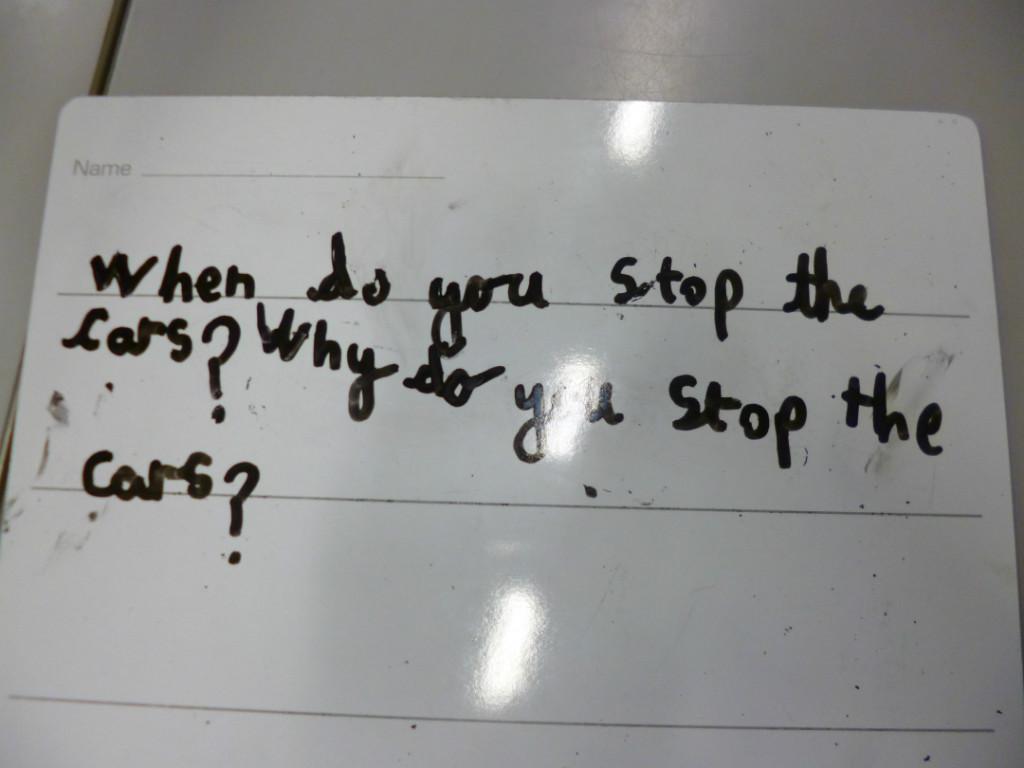 Name
When do you stop the
cars? Why do you stop the
cars?